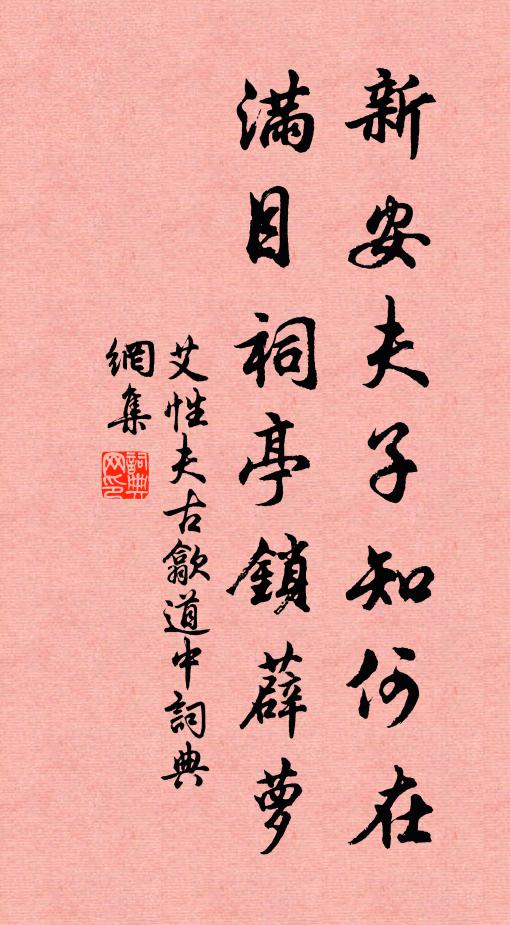 新安夫子知何在
滿目祠亭鎖薜萝
艾性夫古歙道中詞典
網集
詞典網印